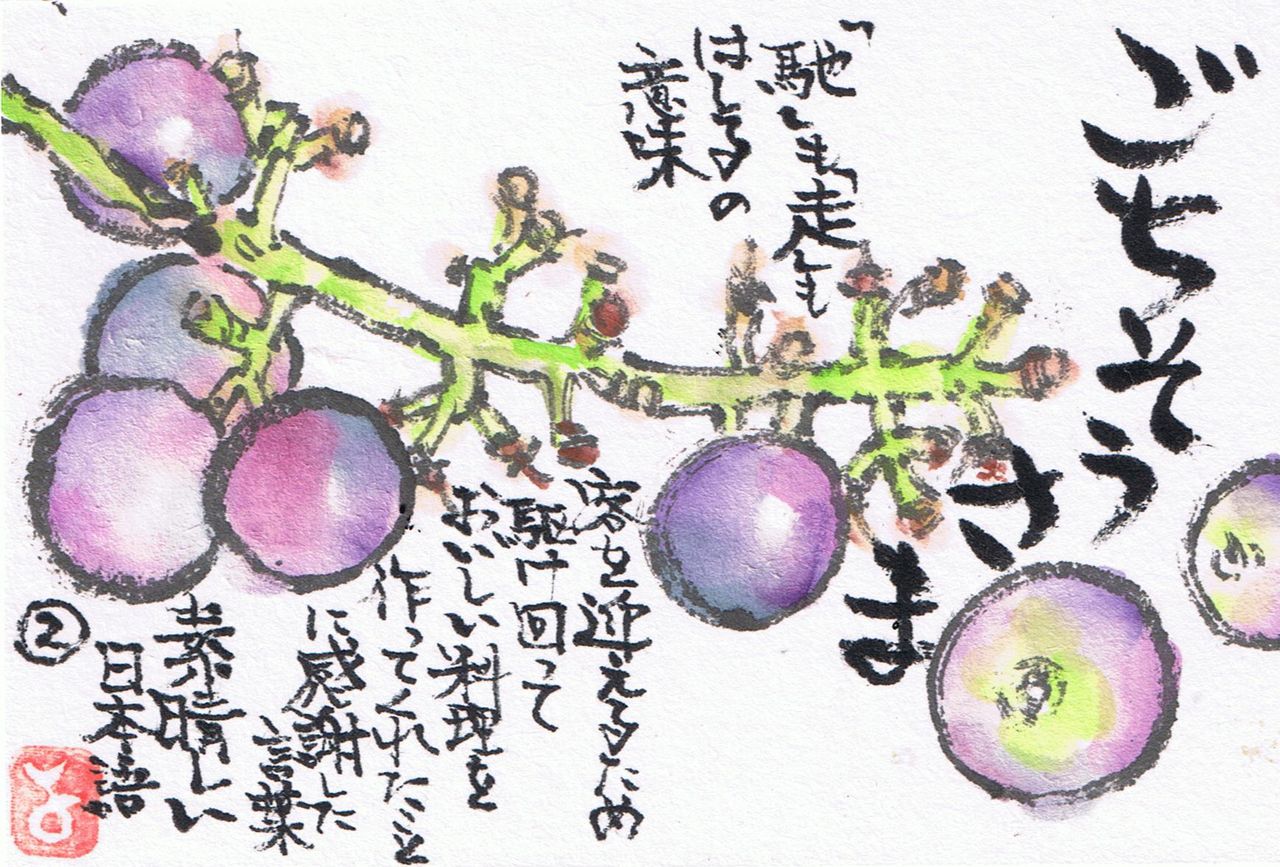 ごちそうさま
「馳」も「走」も
はしるの
意味
客を迎えるため
駆け回って
おいしい料理を
作ってくれたこと
に感謝した
言葉
素晴しい
日本語
②